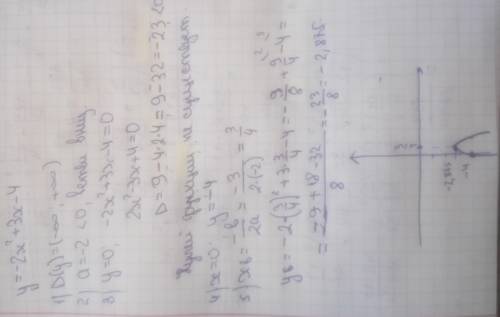 y=-2x²+3x-4
1) D(y)=(-∞; +∞)
2) a=-2<0, ветви вниз
3) y=0, -2x²+3x-4=0
2x²-3x+4=0
D=9-4·2·4=9-32=-23<0
Нулей функции не существует.
4) x=0 y=-4
5) xв=-b/2a=-3/2·(-2)=3/4
yв=-2·(3/4)²+3·3/4-4=-9/8+9/4-4=
=-9+18-32/8=-23/8=-2,875
3/4
-2,875
-4